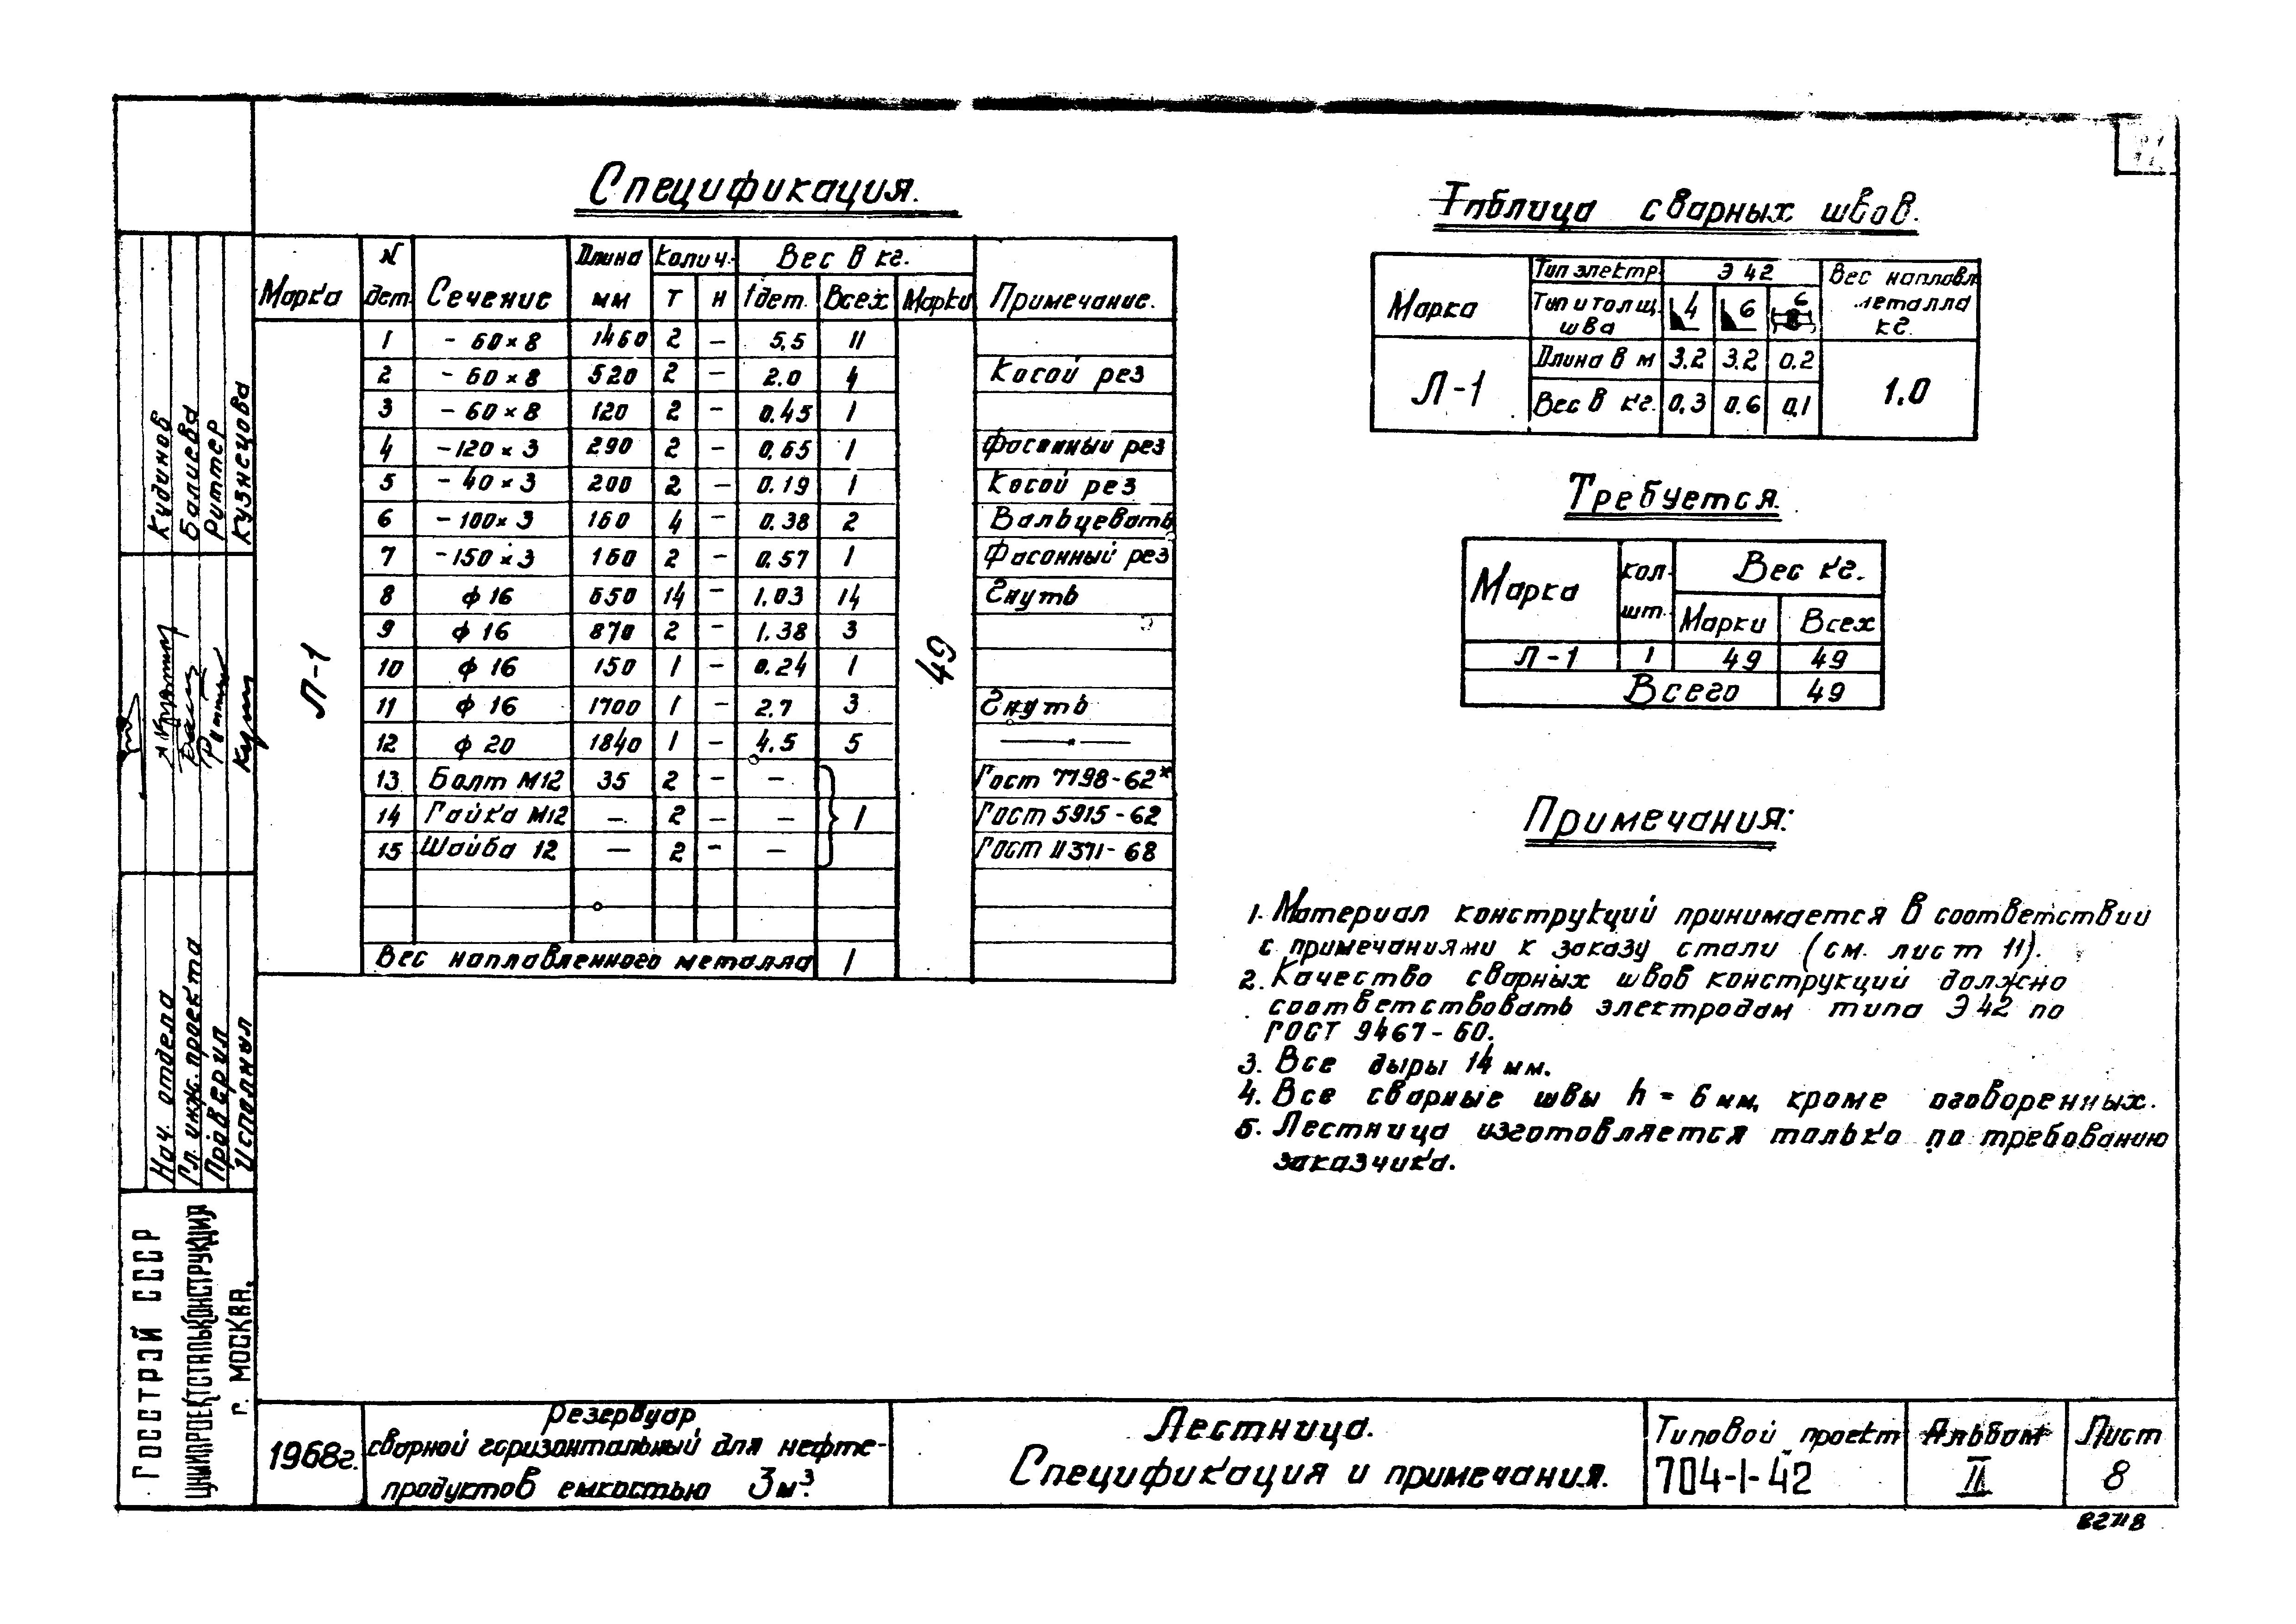 Спецификация.
Марка N дет. Сечение Длина мм Колич. Т Н Вес в кг. 1 дет. Всех Марки Примечание.
Л-1 49
1 - 60×8 1460 2 - 5,5 11
2 - 60×8 520 2 - 2.0 4 Косой рез
3 - 60×8 120 2 - 0.45 1
4 -120×3 290 2 - 0,65 1 Фасонный рез
5 - 40×3 200 2 - 0.19 1 Косой рез
6 -100×3 160 4 - 0.38 2 Вальцевать
7 -150×3 160 2 - 0,57 1 Фасонный рез
8 ф 16 650 14 - 1.03 14 Гнуть
9 ф 16 870 2 - 1.38 3
10 ф 16 150 1 - 0.24 1
11 ф 16 1700 1 - 2,7 3 Гнуть
12 ф 20 1840 1 - 4.5 5 —"—
13 Болт М12 35 2 - -  Гост 7798-62*
14 Гайка М12 - 2 - - 1 Гост 5915-62
15 Шайба 12 - 2 - - Гост 11371-68
Вес наплавленного металла 1
Таблица сварных швов.
Марка Тип электр. Э 42 Вес наплавл. металла кг.
Тип и толщ. шва 4 6 6
Л-1 Длина в м 3.2 3.2 0.2 1.0
Вес в кг. 0.3 0.6 0,1
Требуется.
Марка кол. шт. Вес кг.
Марки Всех
Л-1 1 49 49
Всего 49
Примечания:
1. Материал конструкций принимается в соответствии
с примечаниями к заказу стали (см. лист 11).
2. Качество сварных швов конструкций должно
соответствовать электродам типа Э 42 по
ГОСТ 9467-60.
3. Все дыры 14 мм.
4. Все сварные швы h = 6 мм, кроме оговоренных.
5. Лестница изготовляется только по требованию
заказчика.
Нач. отдела Кудинов
Гл. инж. проекта Балиева
Проверил Риттер
Исполнил Кузнецова
ГОССТРОЙ СССР
ЦНИИПРОЕКТСТАЛЬКОНСТРУКЦИЯ
г. МОСКВА.
1968г.
Резервуар
сварной горизонтальный для нефте-
продуктов емкостью 3м³.
Лестница.
Спецификация и примечания.
Типовой проект
704-1-42
Альбом
II
Лист
8